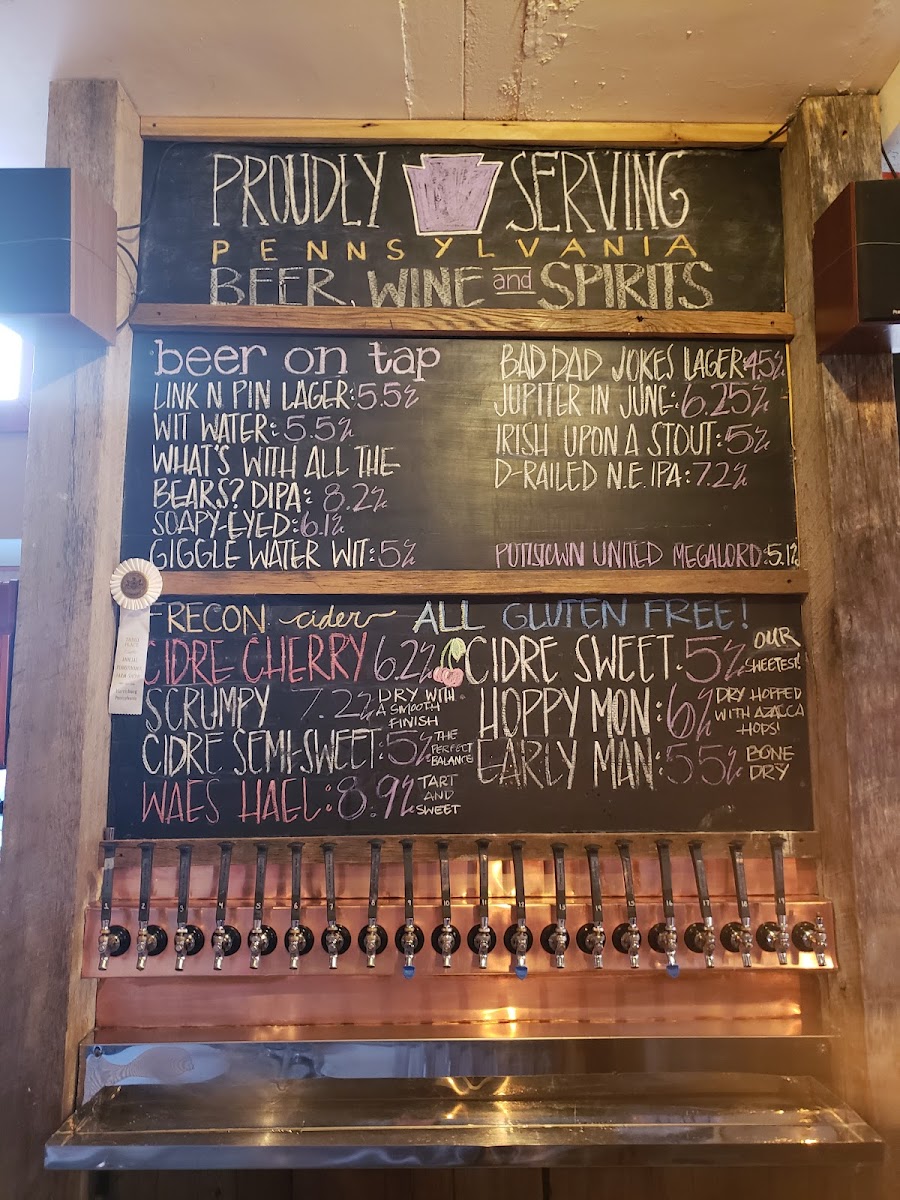 PROUDLY SERVING
PENNSYLVANIA
BEER, WINE and SPIRITS
beer on tap
LINK N PIN LAGER: 5.5%
WIT WATER: 5.5%
WHAT'S WITH ALL THE
BEARS? DIPA: 8.2%
SOAPY-EYED: 6.1%
GIGGLE WATER WIT: 5%
BAD DAD JOKES LAGER: 4.5%
JUPITER IN JUNE: 6.25%
IRISH UPON A STOUT: 5%
D-RAILED N.E. IPA: 7.2%
POTTSTOWN UNITED MEGALORD: 5.1%
FRECON cider ALL GLUTEN FREE!
CIDRE CHERRY 6.2%
SCRUMPY 7.2% DRY WITH
A SMOOTH
FINISH
CIDRE SEMI-SWEET: 5% THE
PERFECT
BALANCE
WAES HAEL: 8.9% TART
AND
SWEET
CIDRE SWEET. 5% OUR
SWEETEST!
HOPPY MON: 6% DRY HOPPED
WITH AZACCA
HOPS!
EARLY MAN: 5.5% BONE
DRY
1 2 3 4 5 6 7 8 9 10 11 12 13 14 15 16 17 18 19